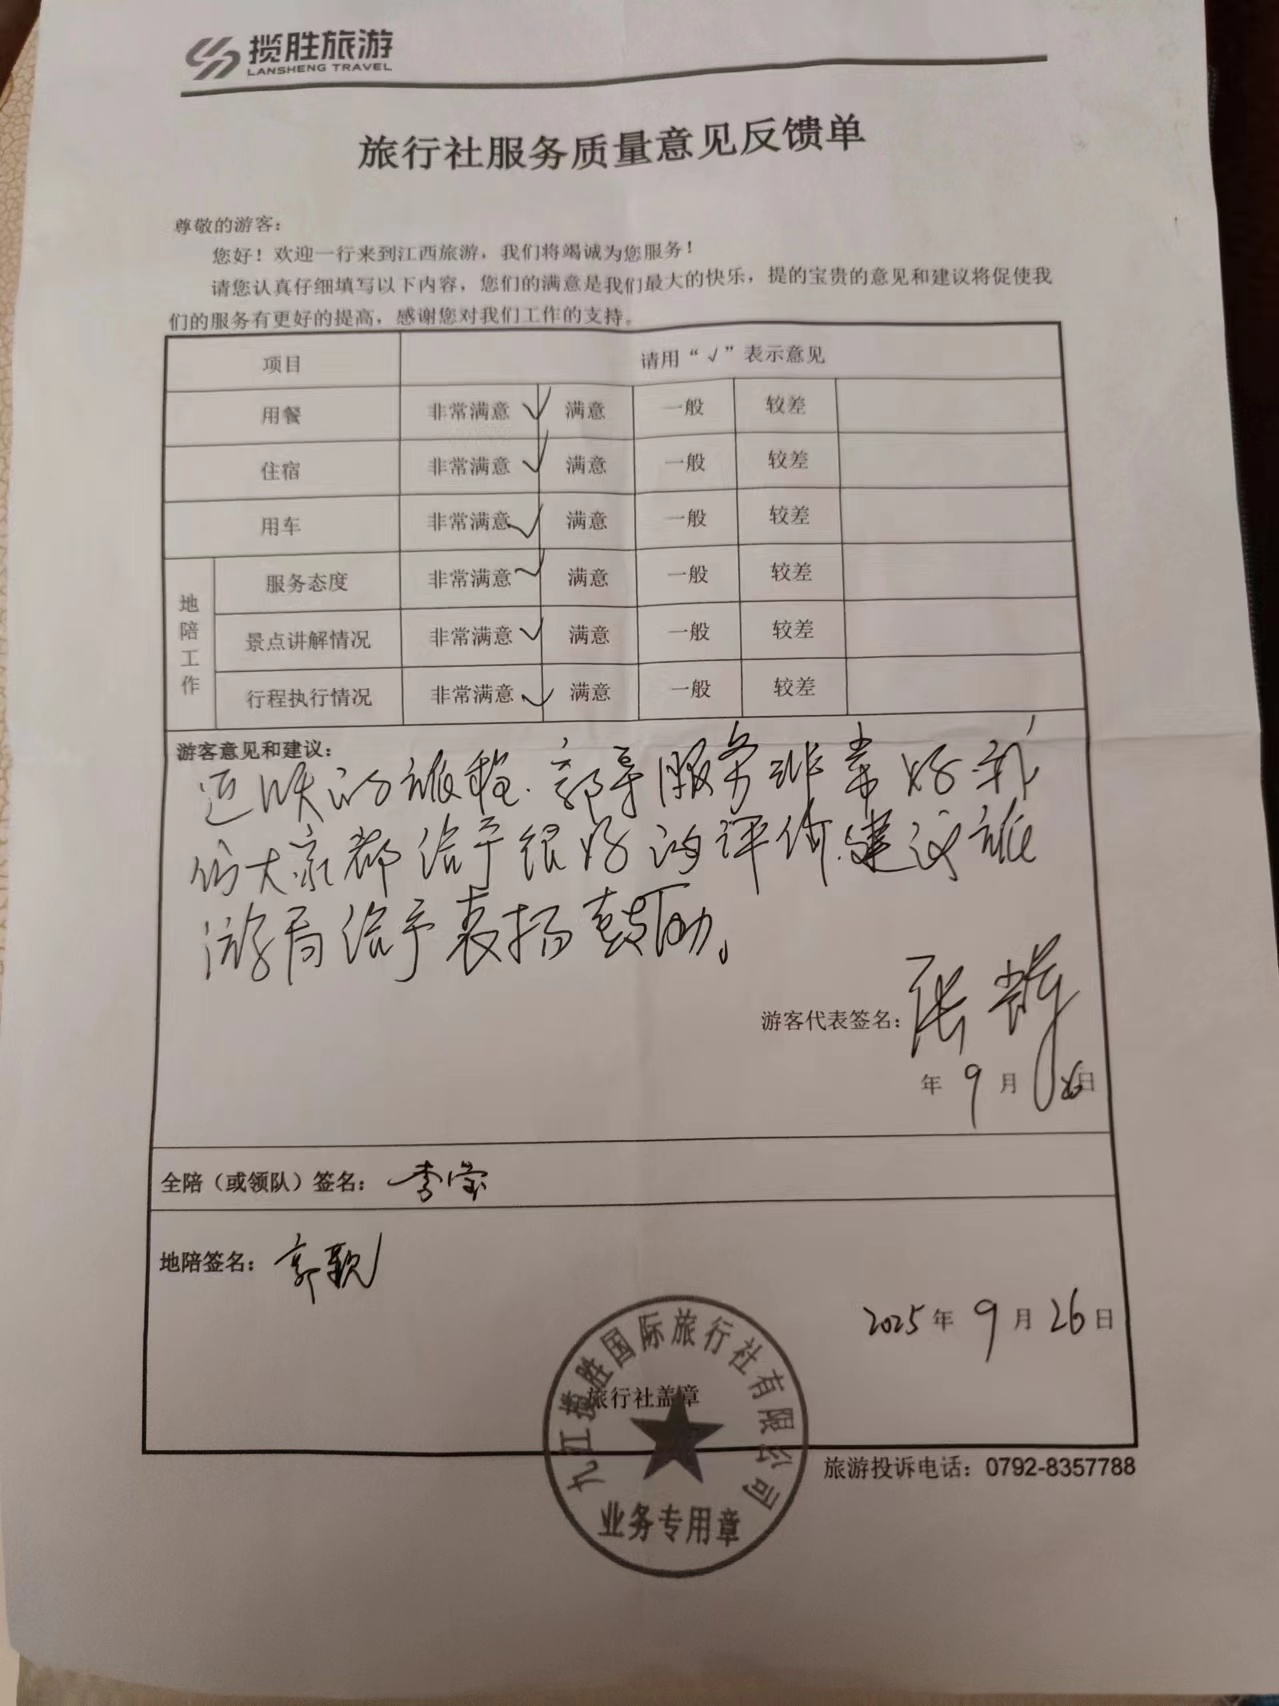 揽胜旅游
LANSHENG TRAVEL
旅行社服务质量意见反馈单
尊敬的游客：
您好！欢迎一行来到江西旅游，我们将竭诚为您服务！
请您认真仔细填写以下内容，您们的满意是我们最大的快乐，提的宝贵的意见和建议将促使我
们的服务有更好的提高，感谢您对我们工作的支持。
项目 请用“√”表示意见
用餐 非常满意 √ 满意 一般 较差
住宿 非常满意 √ 满意 一般 较差
用车 非常满意 √ 满意 一般 较差
地陪工作
服务态度 非常满意 √ 满意 一般 较差
景点讲解情况 非常满意 √ 满意 一般 较差
行程执行情况 非常满意 √ 满意 一般 较差
游客意见和建议：
的旅程，郭导服务非常好，我
们大家都给予很好的评价，建议旅
游局给予表扬鼓励。
游客代表签名：张
年 9 月 26 日
全陪（或领队）签名：李莹
地陪签名：郭歌
2025 年 9 月 26 日
旅行社盖章
九江揽胜国际旅行社有限公司
业务专用章
旅游投诉电话：0792-8357788